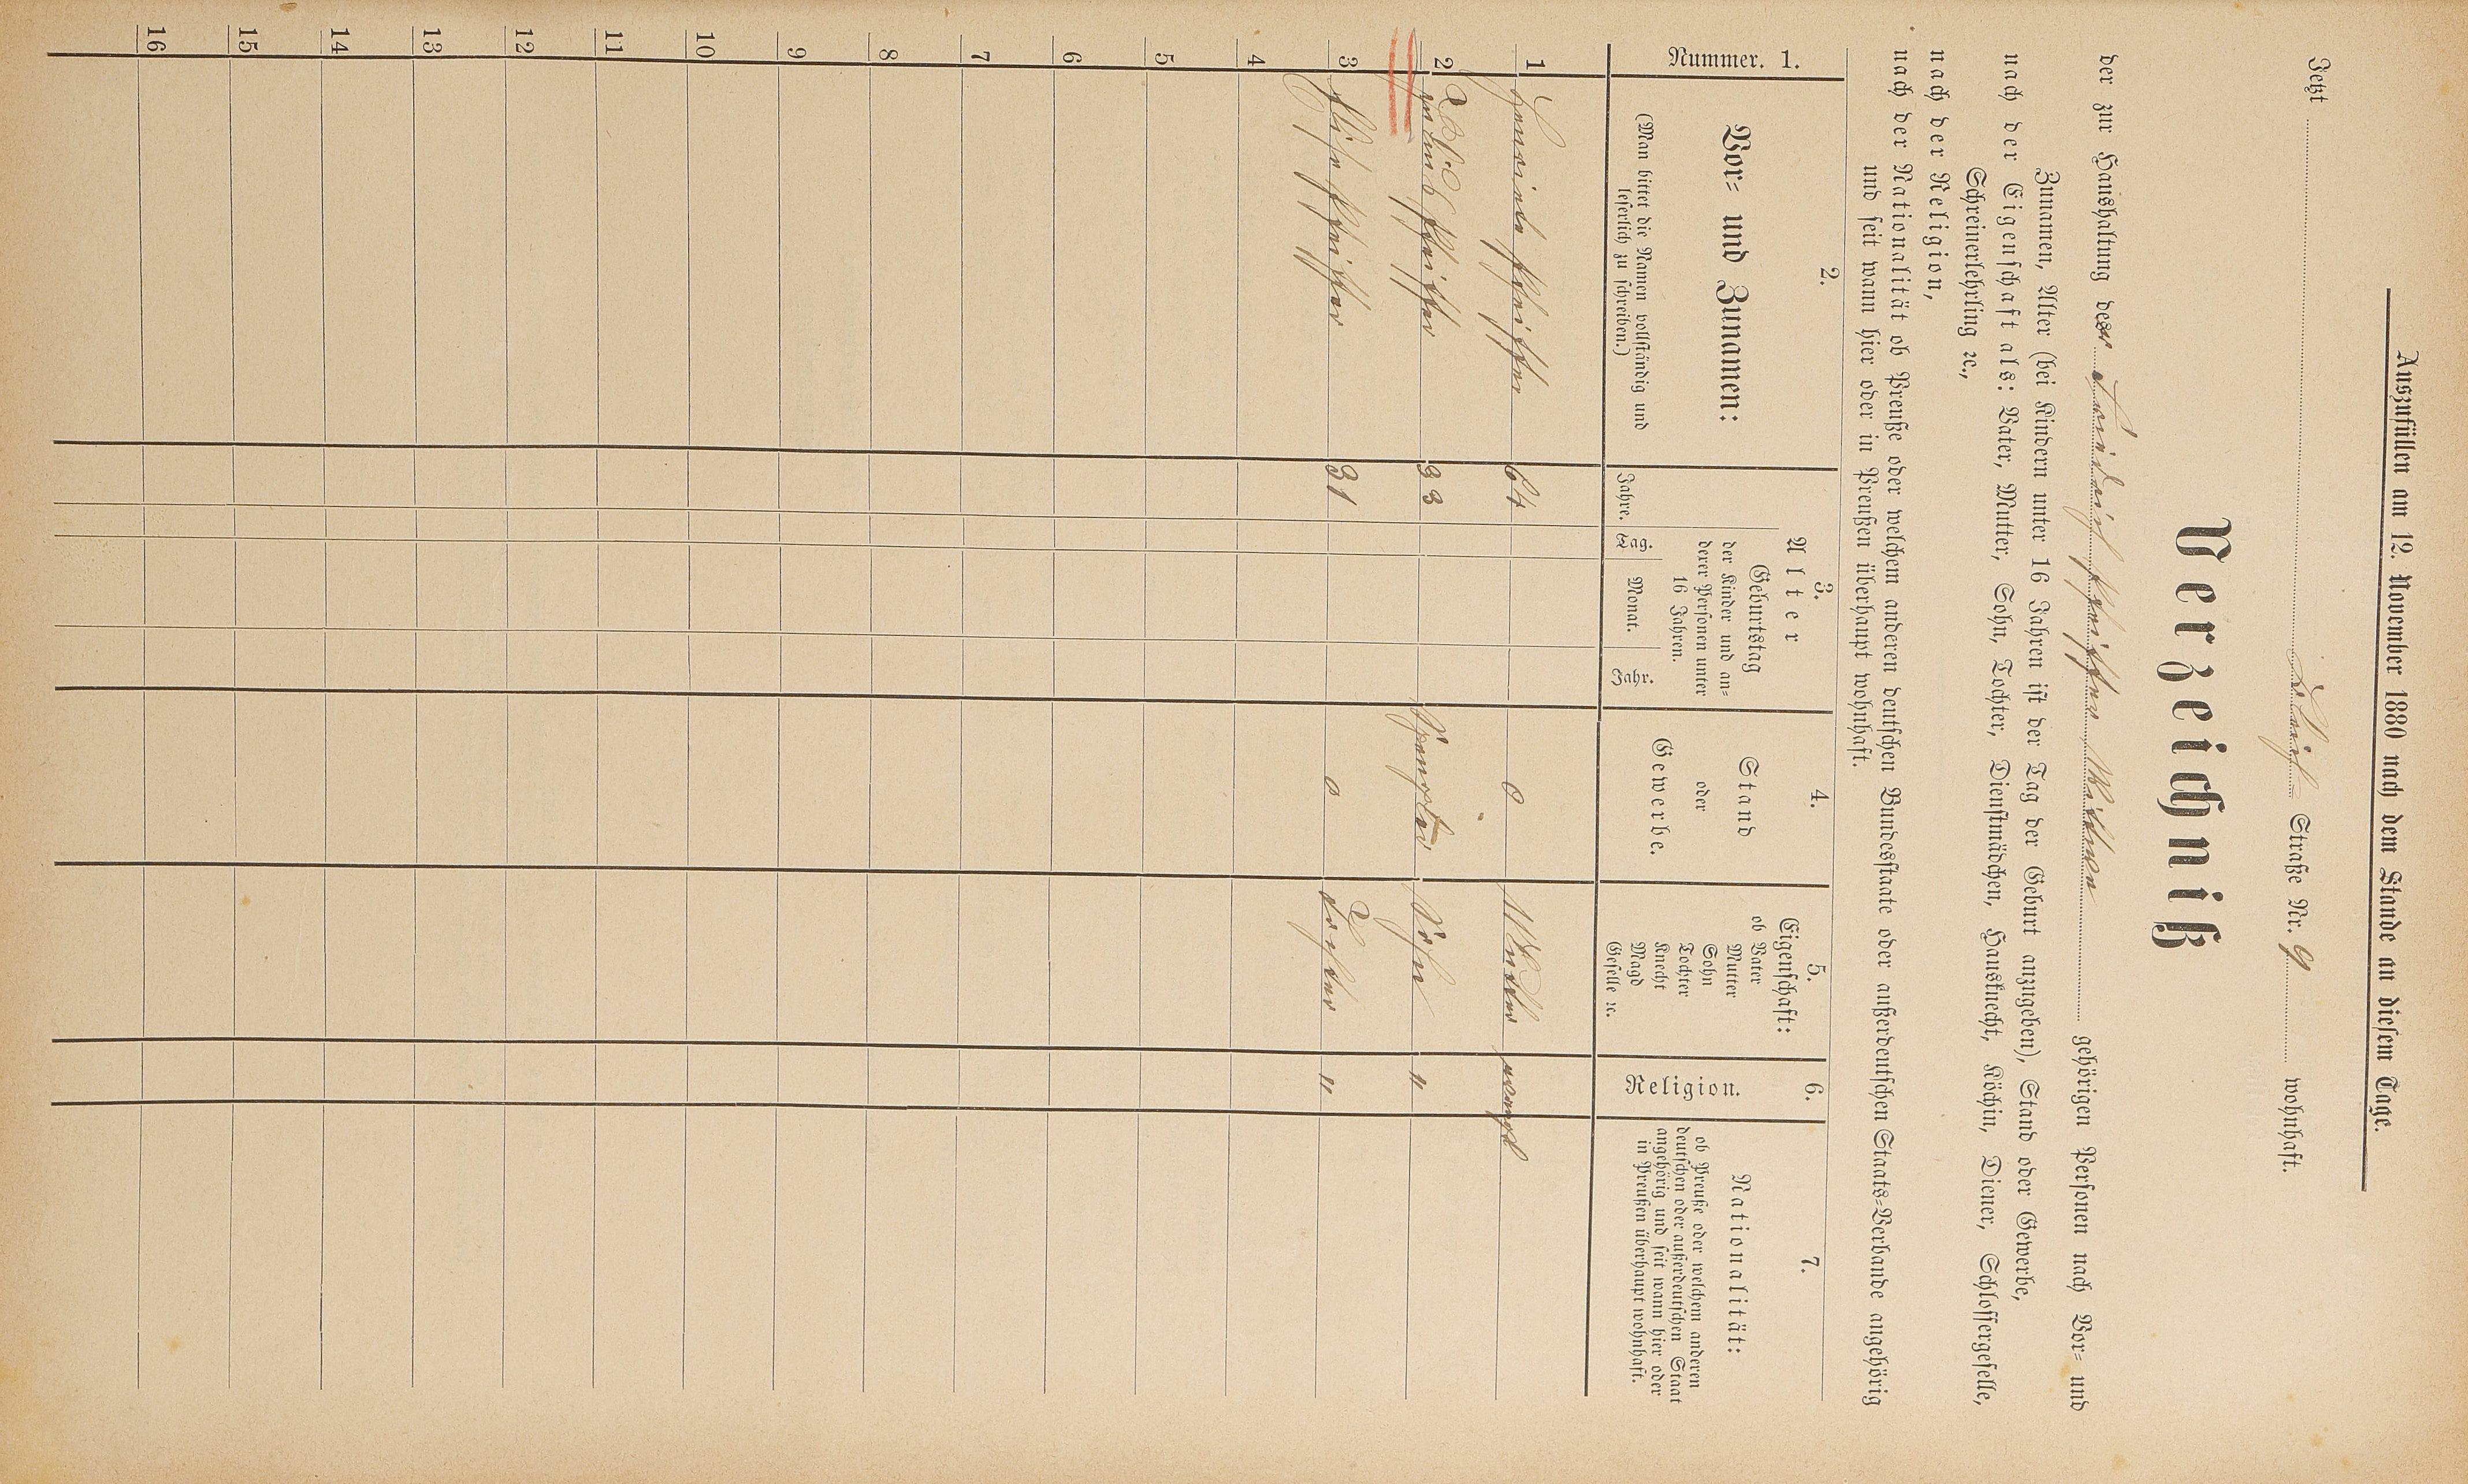 Auszufüllen am 12. November 1880 nach dem Stande an diesem Tage.
Jetzt Straße Nr. 9 wohnhaft.
Verzeichniß
der zur Haushaltung der Pfeiffer Wittwe gehörigen Personen nach Vor- und
Zunamen, Alter (bei Kindern unter 16 Jahren ist der Tag der Geburt anzugeben), Stand oder Gewerbe,
nach der Eigenschaft als: Vater, Mutter, Sohn, Tochter, Dienstmädchen, Hausknecht, Köchin, Diener, Schlossergeselle,
Schreinerlehrling ꝛc.,
nach der Religion,
nach der Nationalität ob Preuße oder welchem anderen deutschen Bundesstaate oder außerdeutschen Staats-Verbande angehörig
und seit wann hier oder in Preußen überhaupt wohnhaft.
Nummer. 1.
2.
Vor- und Zunamen:
(Man bittet die Namen vollständig und
leserlich zu schreiben.)
3.
Alter
Jahre.
Geburtstag
der Kinder und an-
derer Personen unter
16 Jahren.
Tag. Monat. Jahr.
4.
Stand
oder
Gewerbe.
5.
Eigenschaft:
ob Vater
Mutter
Sohn
Tochter
Knecht
Magd
Geselle ꝛc.
6.
Religion.
7.
Nationalität:
ob Preuße oder welchem anderen
deutschen oder außerdeutschen Staat
angehörig und seit wann hier oder
in Preußen überhaupt wohnhaft.
1 Pfeiffer 64 0 Mutter evangl
2 Pfeiffer 33 Sohn "
3 Elise Pfeiffer 31 0 Tochter "
4
5
6
7
8
9
10
11
12
13
14
15
16